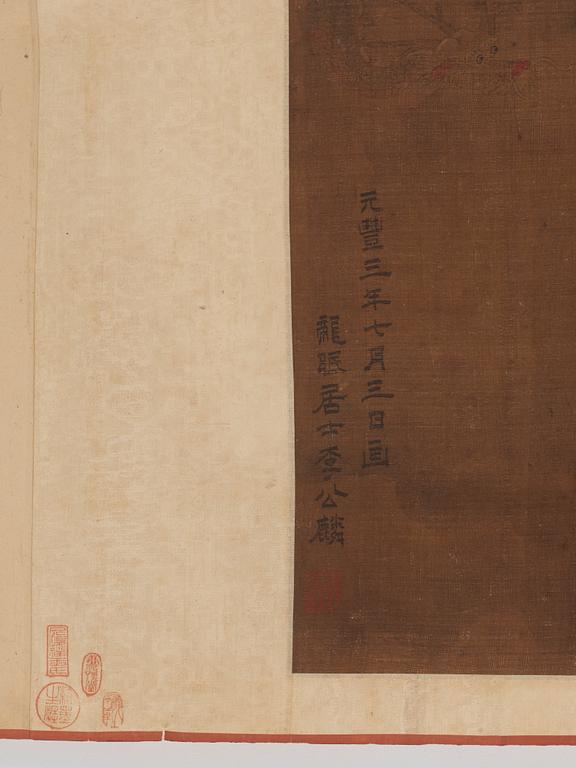 元豐三年七月三日画
龍眠居士李公麟